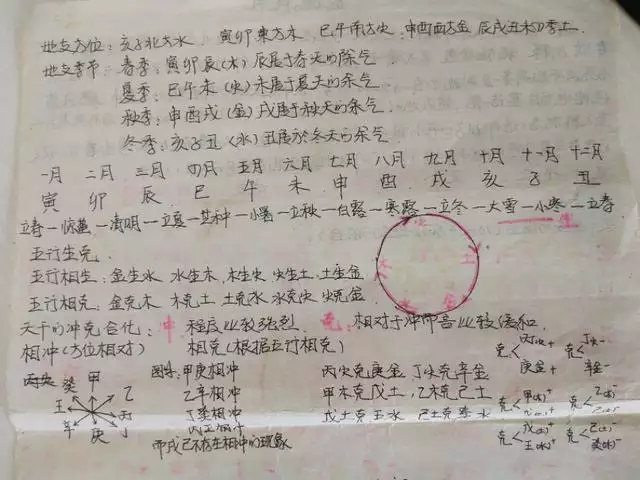 地支方位：亥子北方水．寅卯東方木．巳午南方火．申酉西方金．辰戌丑未四季土．
地支季节：春季：寅卯辰（木）辰属于春天的余气
夏季：巳午未（火）未属于夏天的余气
秋季：申酉戌（金）戌属于秋天的余气
冬季：亥子丑（水）丑属於冬天的余气．
一月 二月 三月 四月 五月 六月 七月 八月 九月 十月 十一月 十二月
寅 卯 辰 巳 午 未 申 酉 戌 亥 子 丑
立春一惊蛰一清明一立夏一芒种一小暑一立秋一白露一寒露一立冬一大雪一小寒一立春
五行生克．
五行相生：金生水 水生木．木生火 火生土．土生金
五行相克：金克木 木克土 土克水 水克火 火克金．
火 土 金 水
生
天干的冲克合化：冲 程度比较强烈 克：相对于冲而言比较缓和．
相冲（方位相对） 相克（根据五行相克）
图示：甲庚相冲 丙火克庚金．丁火克辛金
乙辛相冲 甲木克戊土．乙木克己土
丁癸相冲 戊土克壬水 己土克癸水
丙壬相冲
而戊己不存在相冲的现象
丙火
癸 甲
壬 乙
辛 丙
庚 丁
克 丙火+ 庚金+ 克 丁火- 辛金-
克 甲(木)+ 克 乙(木)-
克 戊(土)+ 壬(水)+ 克 己(土)- 癸(水)-